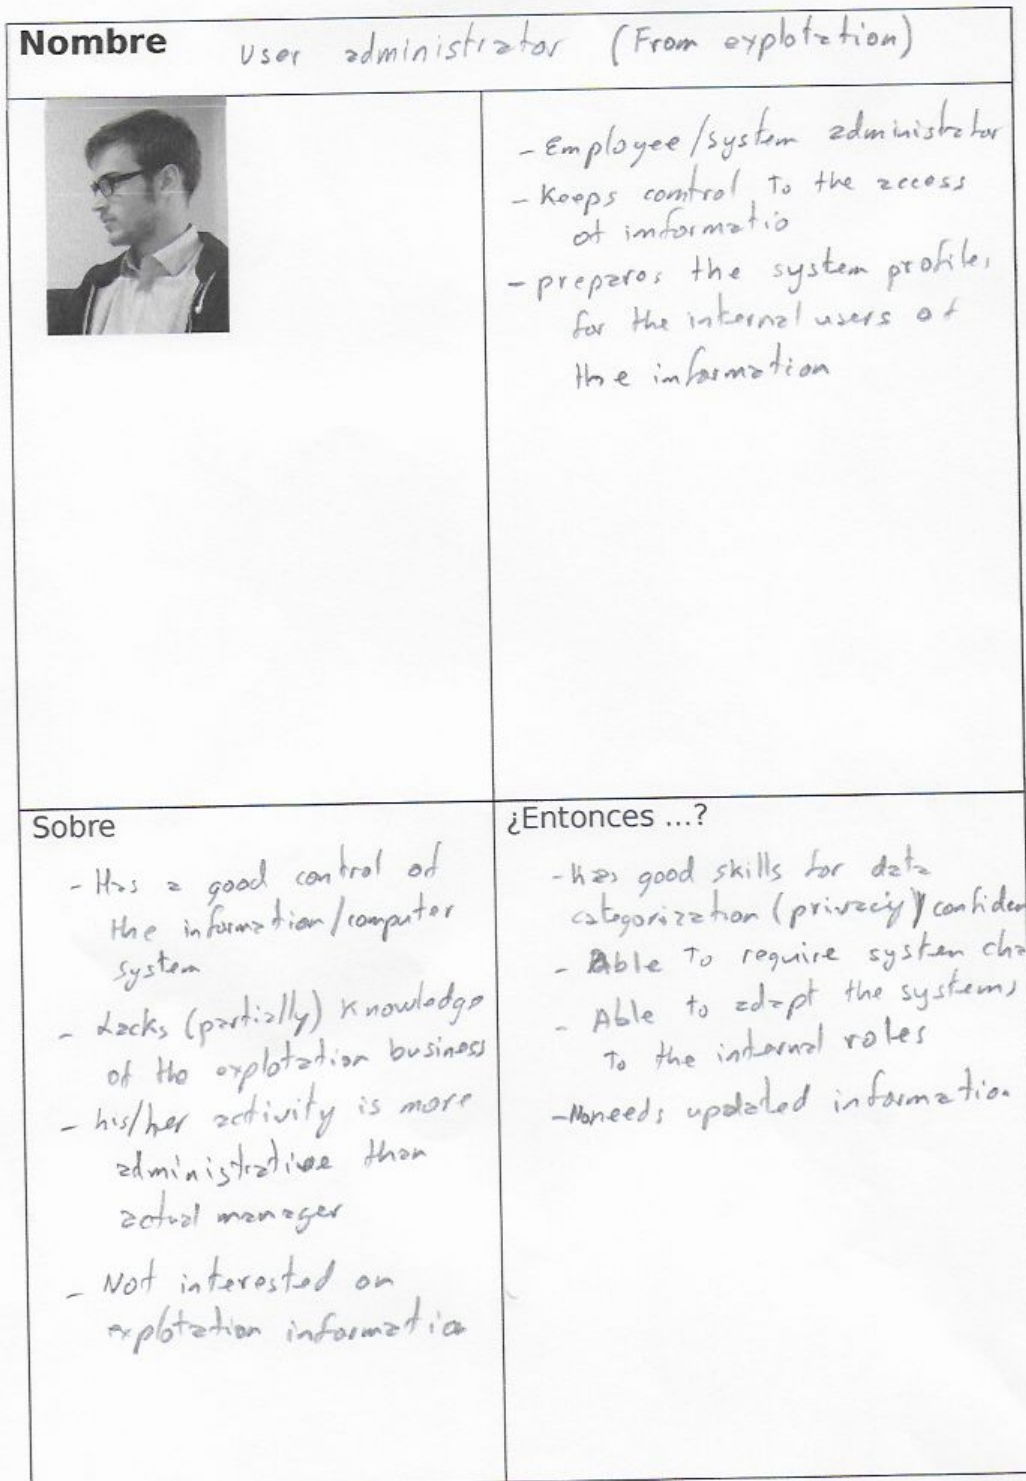 Nombre User administrator (From explotation)
- Employee/system administrator
- Keeps comtrol To the access
of informatio
- prepares the system profiles
for the internal users of
the information
Sobre
- Has a good control of
the information/computer
system
- Lacks (partially) Knowledge
of the explotation business
- his/her activity is more
administrative than
actual manager
- Not interested on
explotation information
¿Entonces ...?
- has good skills for data
categorization (privacy) confiden
- Able To require system cha
- Able to adapt the systems
To the internal roles
- needs updated information